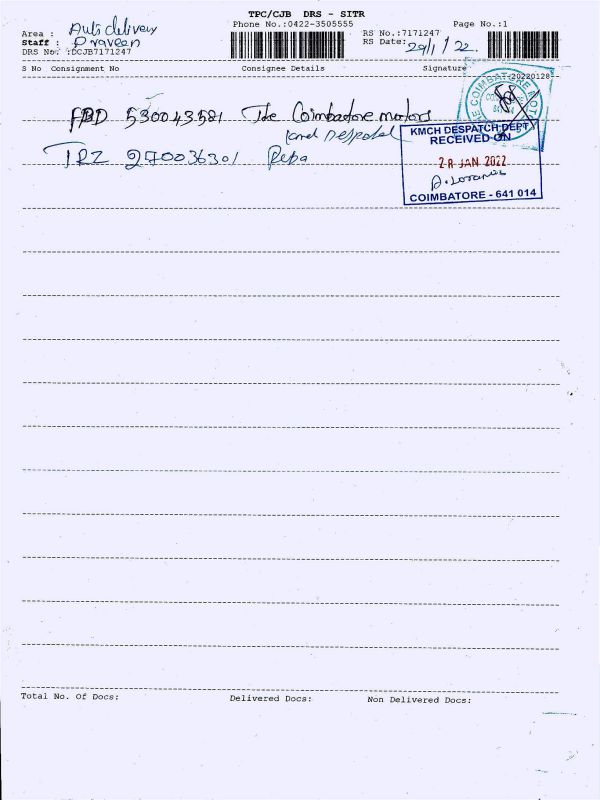 TPC/CJB DRS - SITR
Phone No.:0422-3505555
Page No.:1
Area : Auto delivery
Staff : Praveen
DRS No. :DCJB7171247
RS No.:7171247
RS Date: 29/1/22.
S No Consignment No Consignee Details Signature
AT:20220128
FBD 530043581 The Coimbatore motors
TRZ 270036301
KMCH DESPATCH DEPT
RECEIVED ON
28 JAN 2022
COIMBATORE - 641 014
Total No. Of Docs: Delivered Docs: Non Delivered Docs: